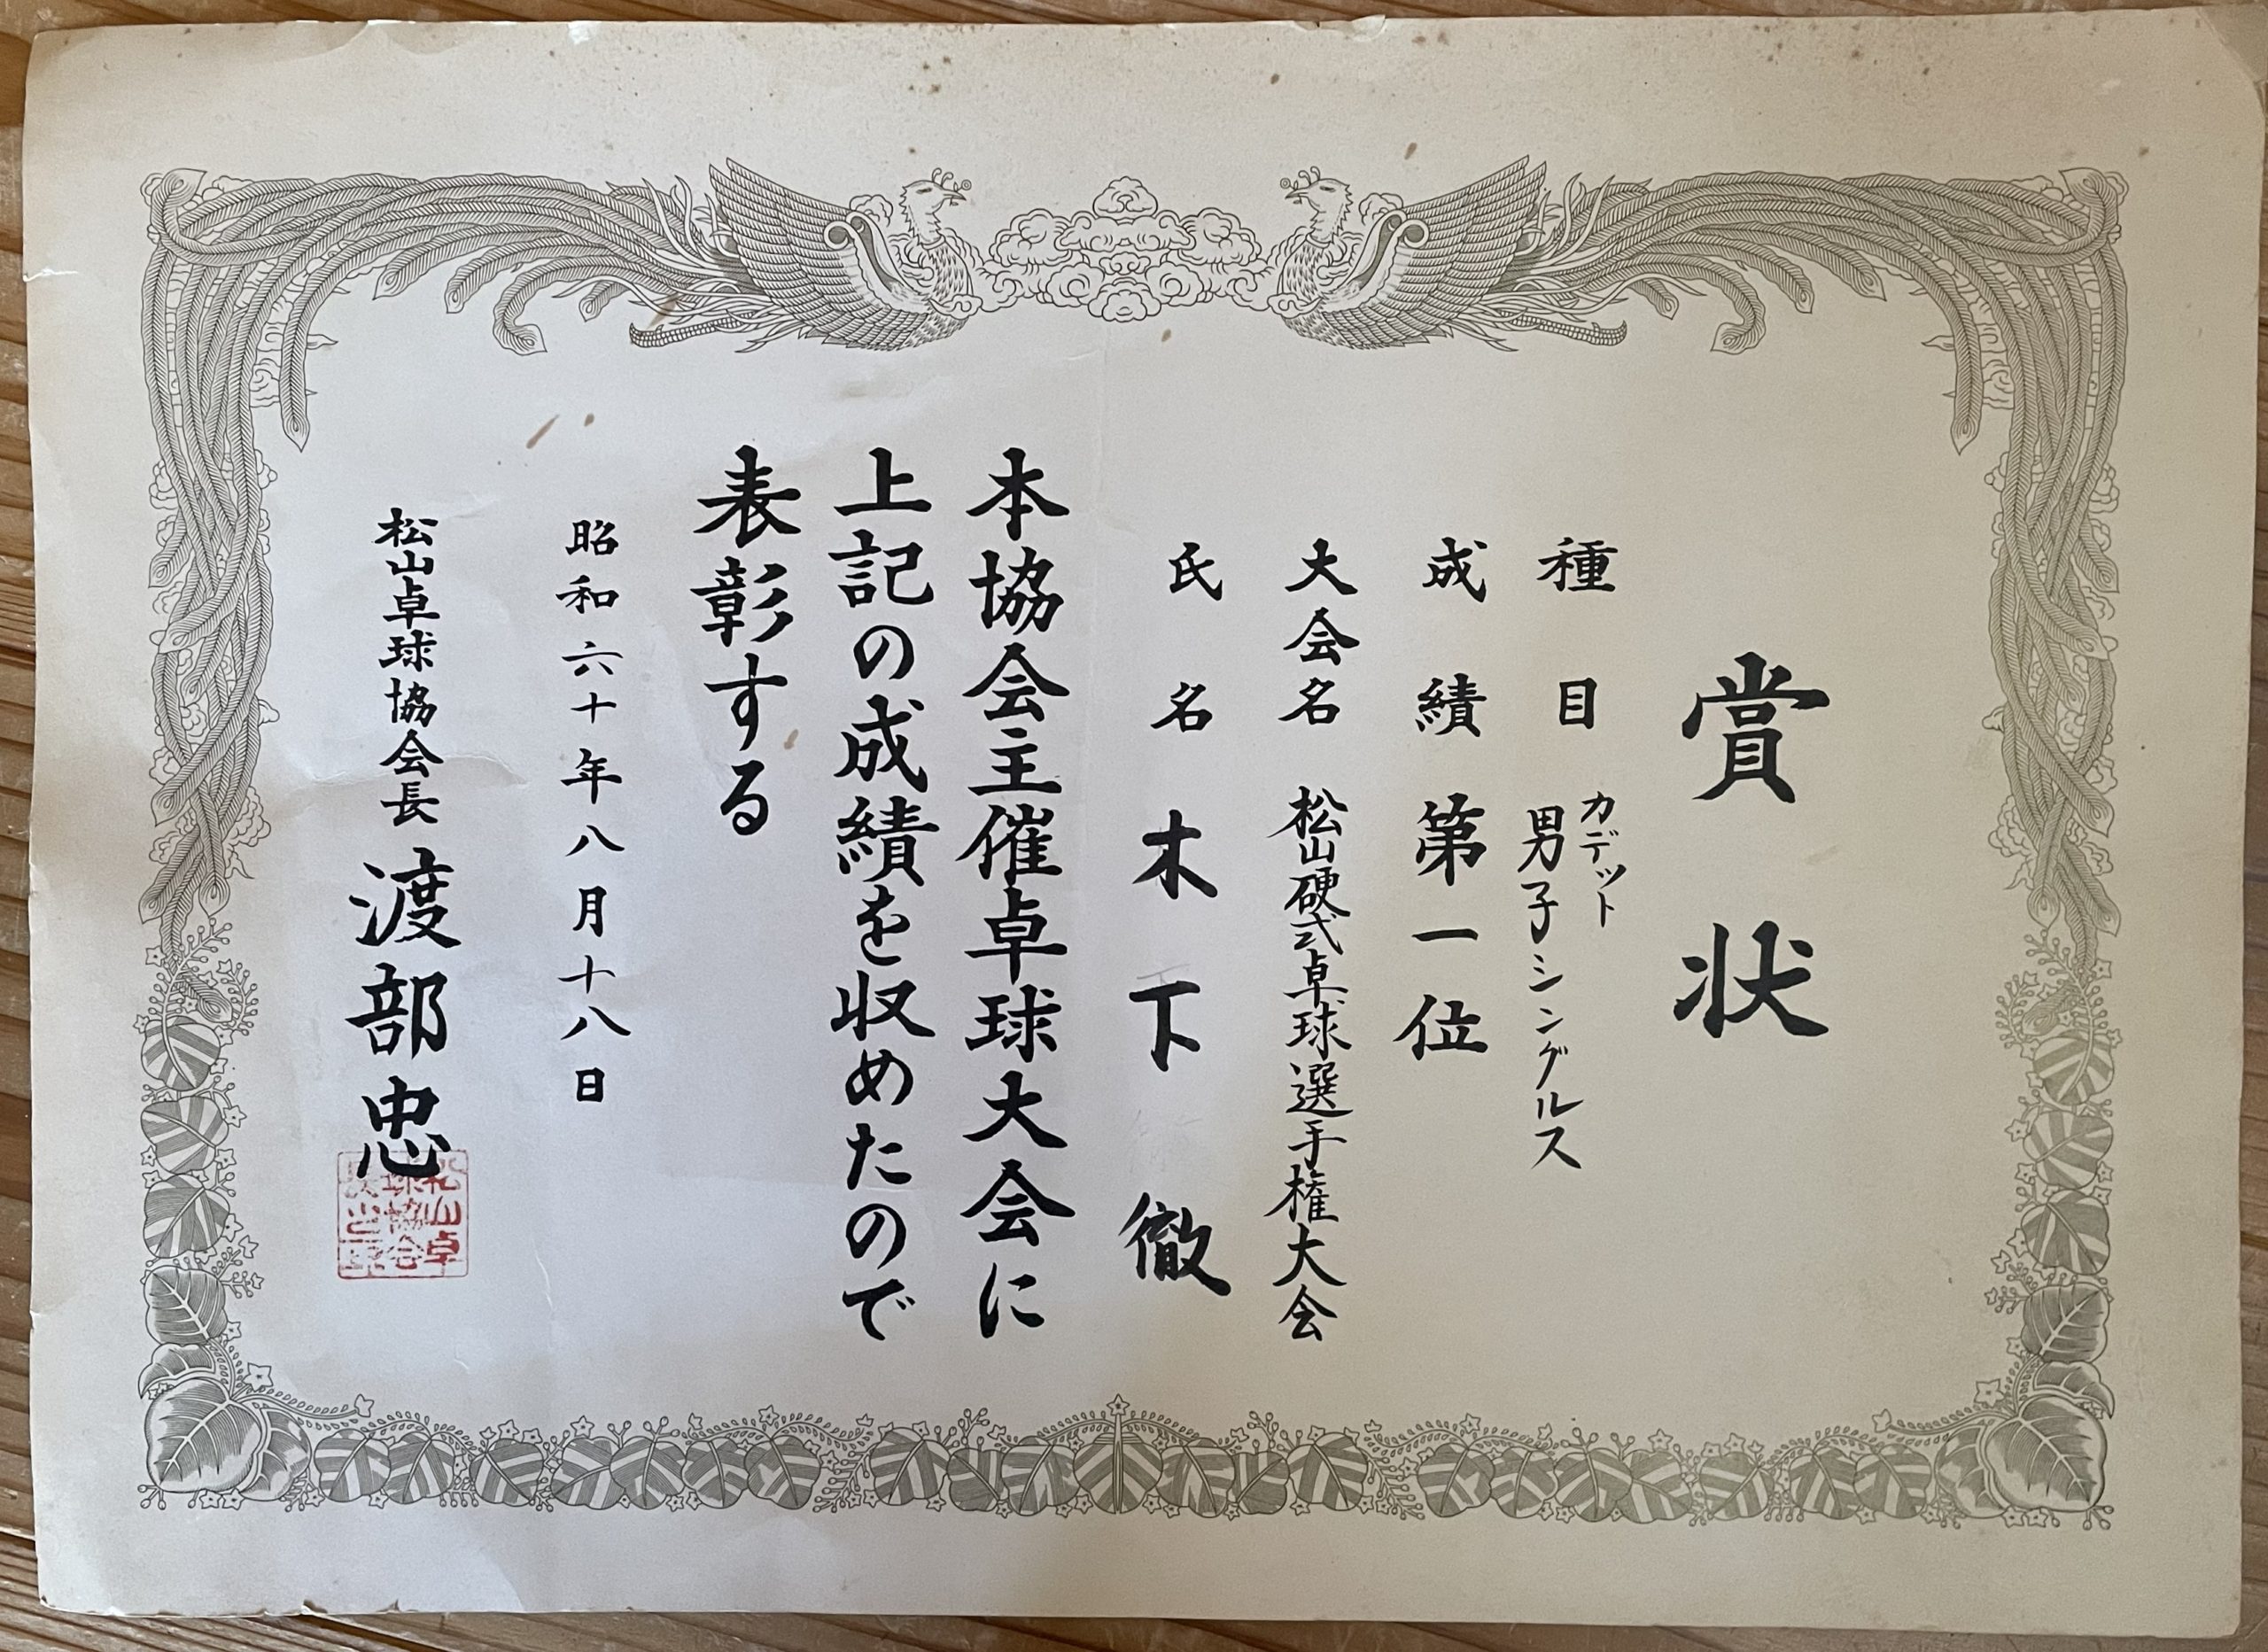 賞状
種目 カデット 男子シングルス
成績 第一位
大会名 松山硬式卓球選手権大会
氏名 木下徹
本協会主催卓球大会に
上記の成績を収めたので
表彰する
昭和六十年八月十八日
松山卓球協会長 渡部忠
松山卓
球協会
長之印